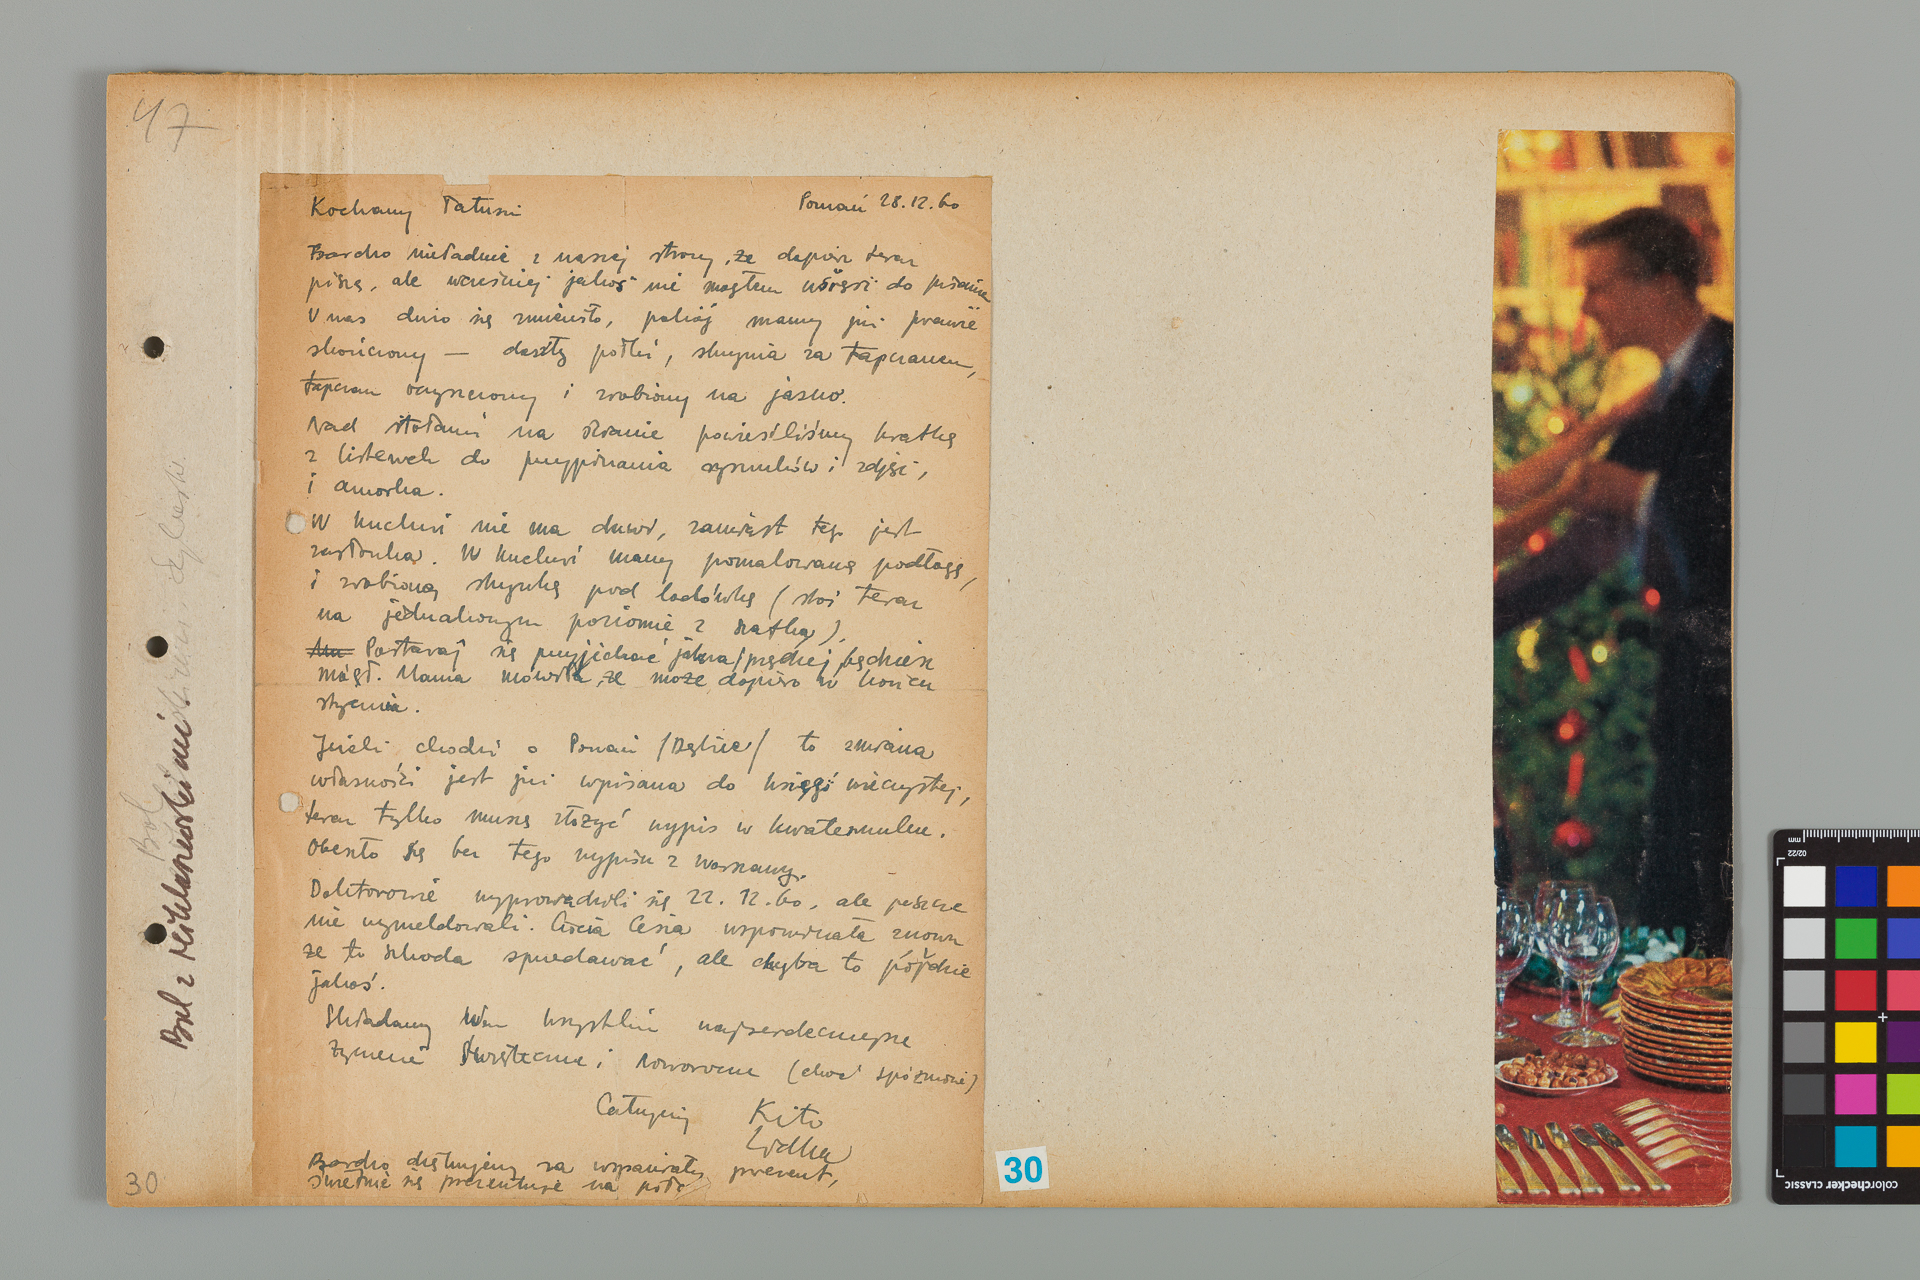 47
Kochany Tatusiu
Poznań 28.12.60
Bardzo nieładnie z naszej strony, że dopiero teraz
piszę, ale wcześniej jakoś nie mogłem usiąść do pisania
U nas dużo się zmieniło, pokój mamy już prawie
skończony — doszły półki, skrzynia za tapczanem,
tapczan oczyszczony i zrobiony na jasno.
Nad stołami na ścianie powiesiliśmy kratkę
z listewek do przypinania rysunków i zdjęć,
i amorka.
W kuchni nie ma drzwi, zamiast tego jest
zasłonka. W kuchni mamy pomalowaną podłogę,
i zrobioną skrzynkę pod lodówkę (stoi teraz
na jednakowym poziomie z szafką).
Postaraj się przyjechać jak / prędzej będziesz
mógł. Mama mówiła, że może dopiero w końcu
stycznia.
Jeśli chodzi o Poznań /Dębiec/ to zmiana
własności jest już wpisana do księgi wieczystej,
teraz tylko muszę złożyć wypis w kwaterunku.
Obeszło się bez tego wypisu z Warszawy.
Doktorowie wyprowadzili się 22.12.60, ale jeszcze
nie wymeldowali. Ciocia Cesia wspominała znowu
że to szkoda sprzedawać, ale chyba to pójdzie
jakoś.
Składamy Wam wszystkim najserdeczniejsze
życzenia Świąteczne i Noworoczne (choć spóźnione)
Całujemy Kito
Lidka
Bardzo dziękujemy za wspaniały prezent,
świetnie się prezentuje na
30
30
Bal z
colorchecker CLASSIC
02/22
mm